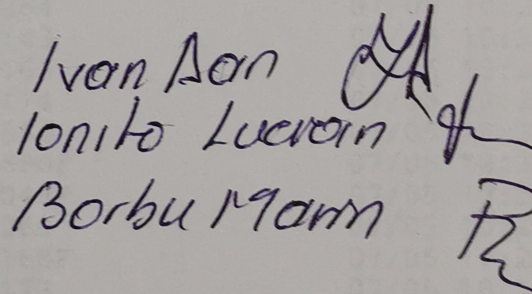 Ivan Dan
Ionita Lucian
Barbu Marin